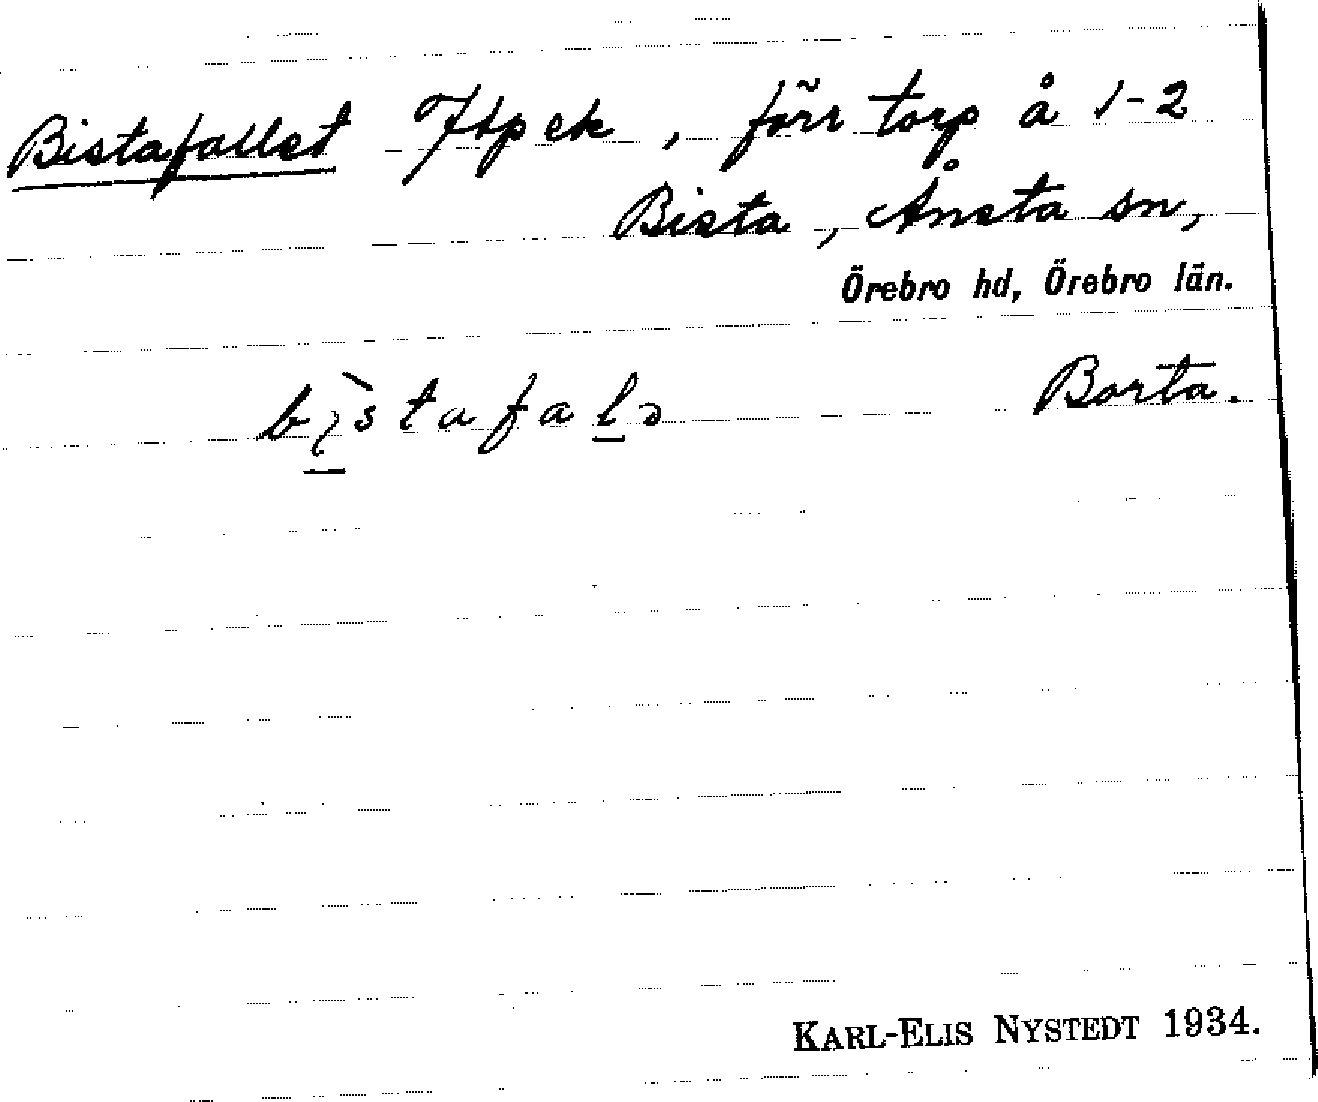 Bistafallet Ftp ek, förr torp å 1-2
Bista, Ånsta sn,
Örebro hd, Örebro län.
bı̀stafalə Borta.
KARL-ELIS NYSTEDT 1934.